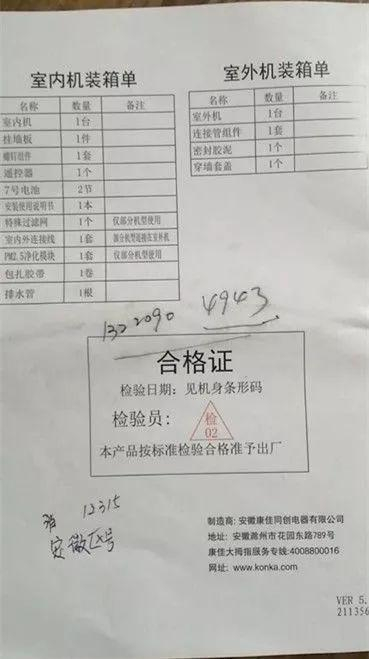 室内机装箱单
名称 数量 备注
室内机 1台
挂墙板 1件
螺钉组件 1套
遥控器 1个
7号电池 2节
安装使用说明书 1本
特殊过滤网 1个 仅部分机型使用
室内外连接线 1套 部分机型连接在室外机
PM2.5净化模块 1套 仅部分机型使用
包扎胶带 1卷
排水管 1根
室外机装箱单
名称 数量 备注
室外机 1台
连接管组件 1套
密封胶泥 1个
穿墙套盖 1个
1322090 4943
合格证
检验日期：见机身条形码
检验员：
检
02
本产品按标准检验合格准予出厂
12315
安徽区号
制造商：安徽康佳同创电器有限公司
地址：安徽滁州市花园东路789号
康佳大拇指服务专线：4008800016
网址：www.konka.com
VER 5.
211356